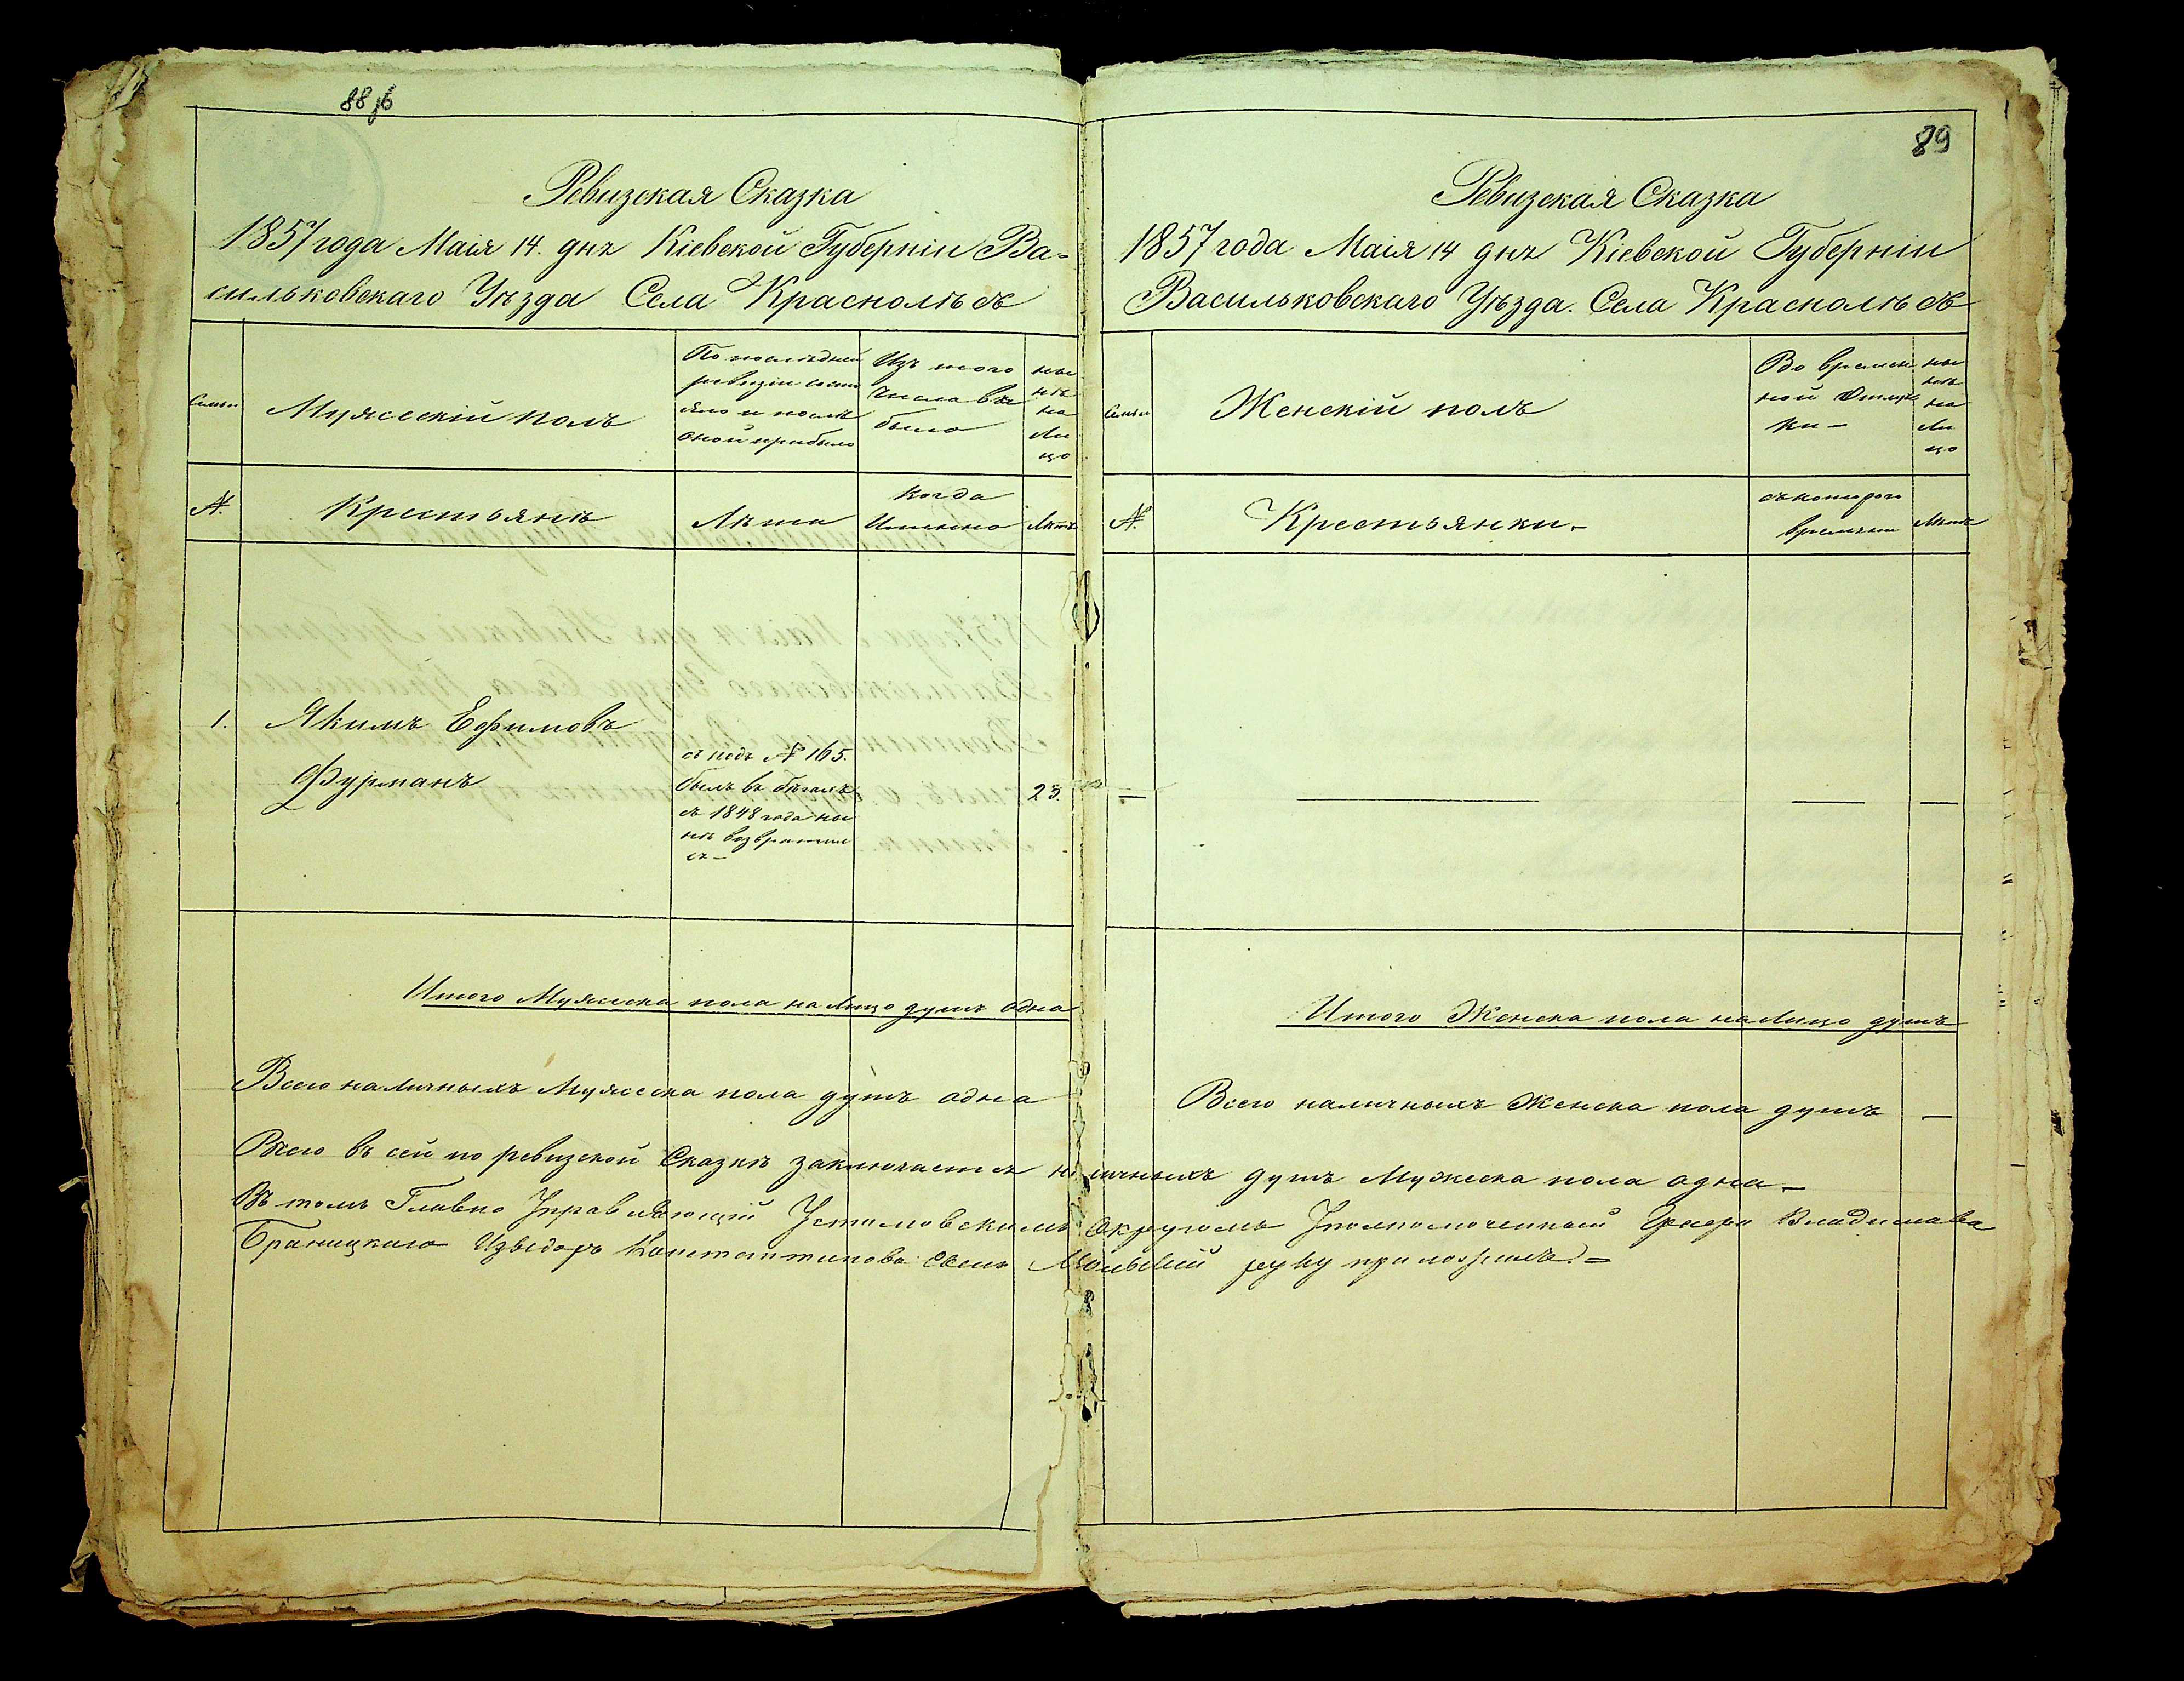 88 об
Ревизская Сказка
1857 года Маія 14. дня Кіевской Губерніи Ва-
сильковскаго Уѣзда Села Краснолѣсъ
Семьи
Мужескій полъ
По послѣдней
ревизіи состо
яло и послѣ
оной прибыло
Изъ того
числа вы
было
ны
нѣ
на
ли
цо
№.
Крестьянѣ
Лѣта
когда
Именно
Лѣтъ
1.
Якимъ Ефимовъ
Фурманъ
съ подъ № 165.
былъ въ бѣгахъ
съ 1848 года ны
нѣ возвратил
ся
23.
Итого Мужеска пола на Лицо душъ одна
Всего наличныхъ Мужеска пола душъ одна
89
Ревизская Сказка
1857 года Маія 14 дня Кіевской Губерніи
Васильковскаго Уѣзда. Села Краснолѣсъ
Семьи
Женскій полъ
Во времен
ной Отлуч
ки –
ны
нѣ
на
ли
цо
№.
Крестьянки.
съ котораго
времени
Лѣтъ
Итого Женска пола на Лицо душъ
Всего наличныхъ Женска пола душъ –
Всего въ сей по ревизской Сказкѣ заключается наличныхъ душъ Мужеска пола одна –
Въ томъ Главно Управляющій Устимовскимъ Округомъ Уполномоченный Графа Владислава
Браницкаго Изыдоръ Константиновъ сынъ руку приложилъ. =